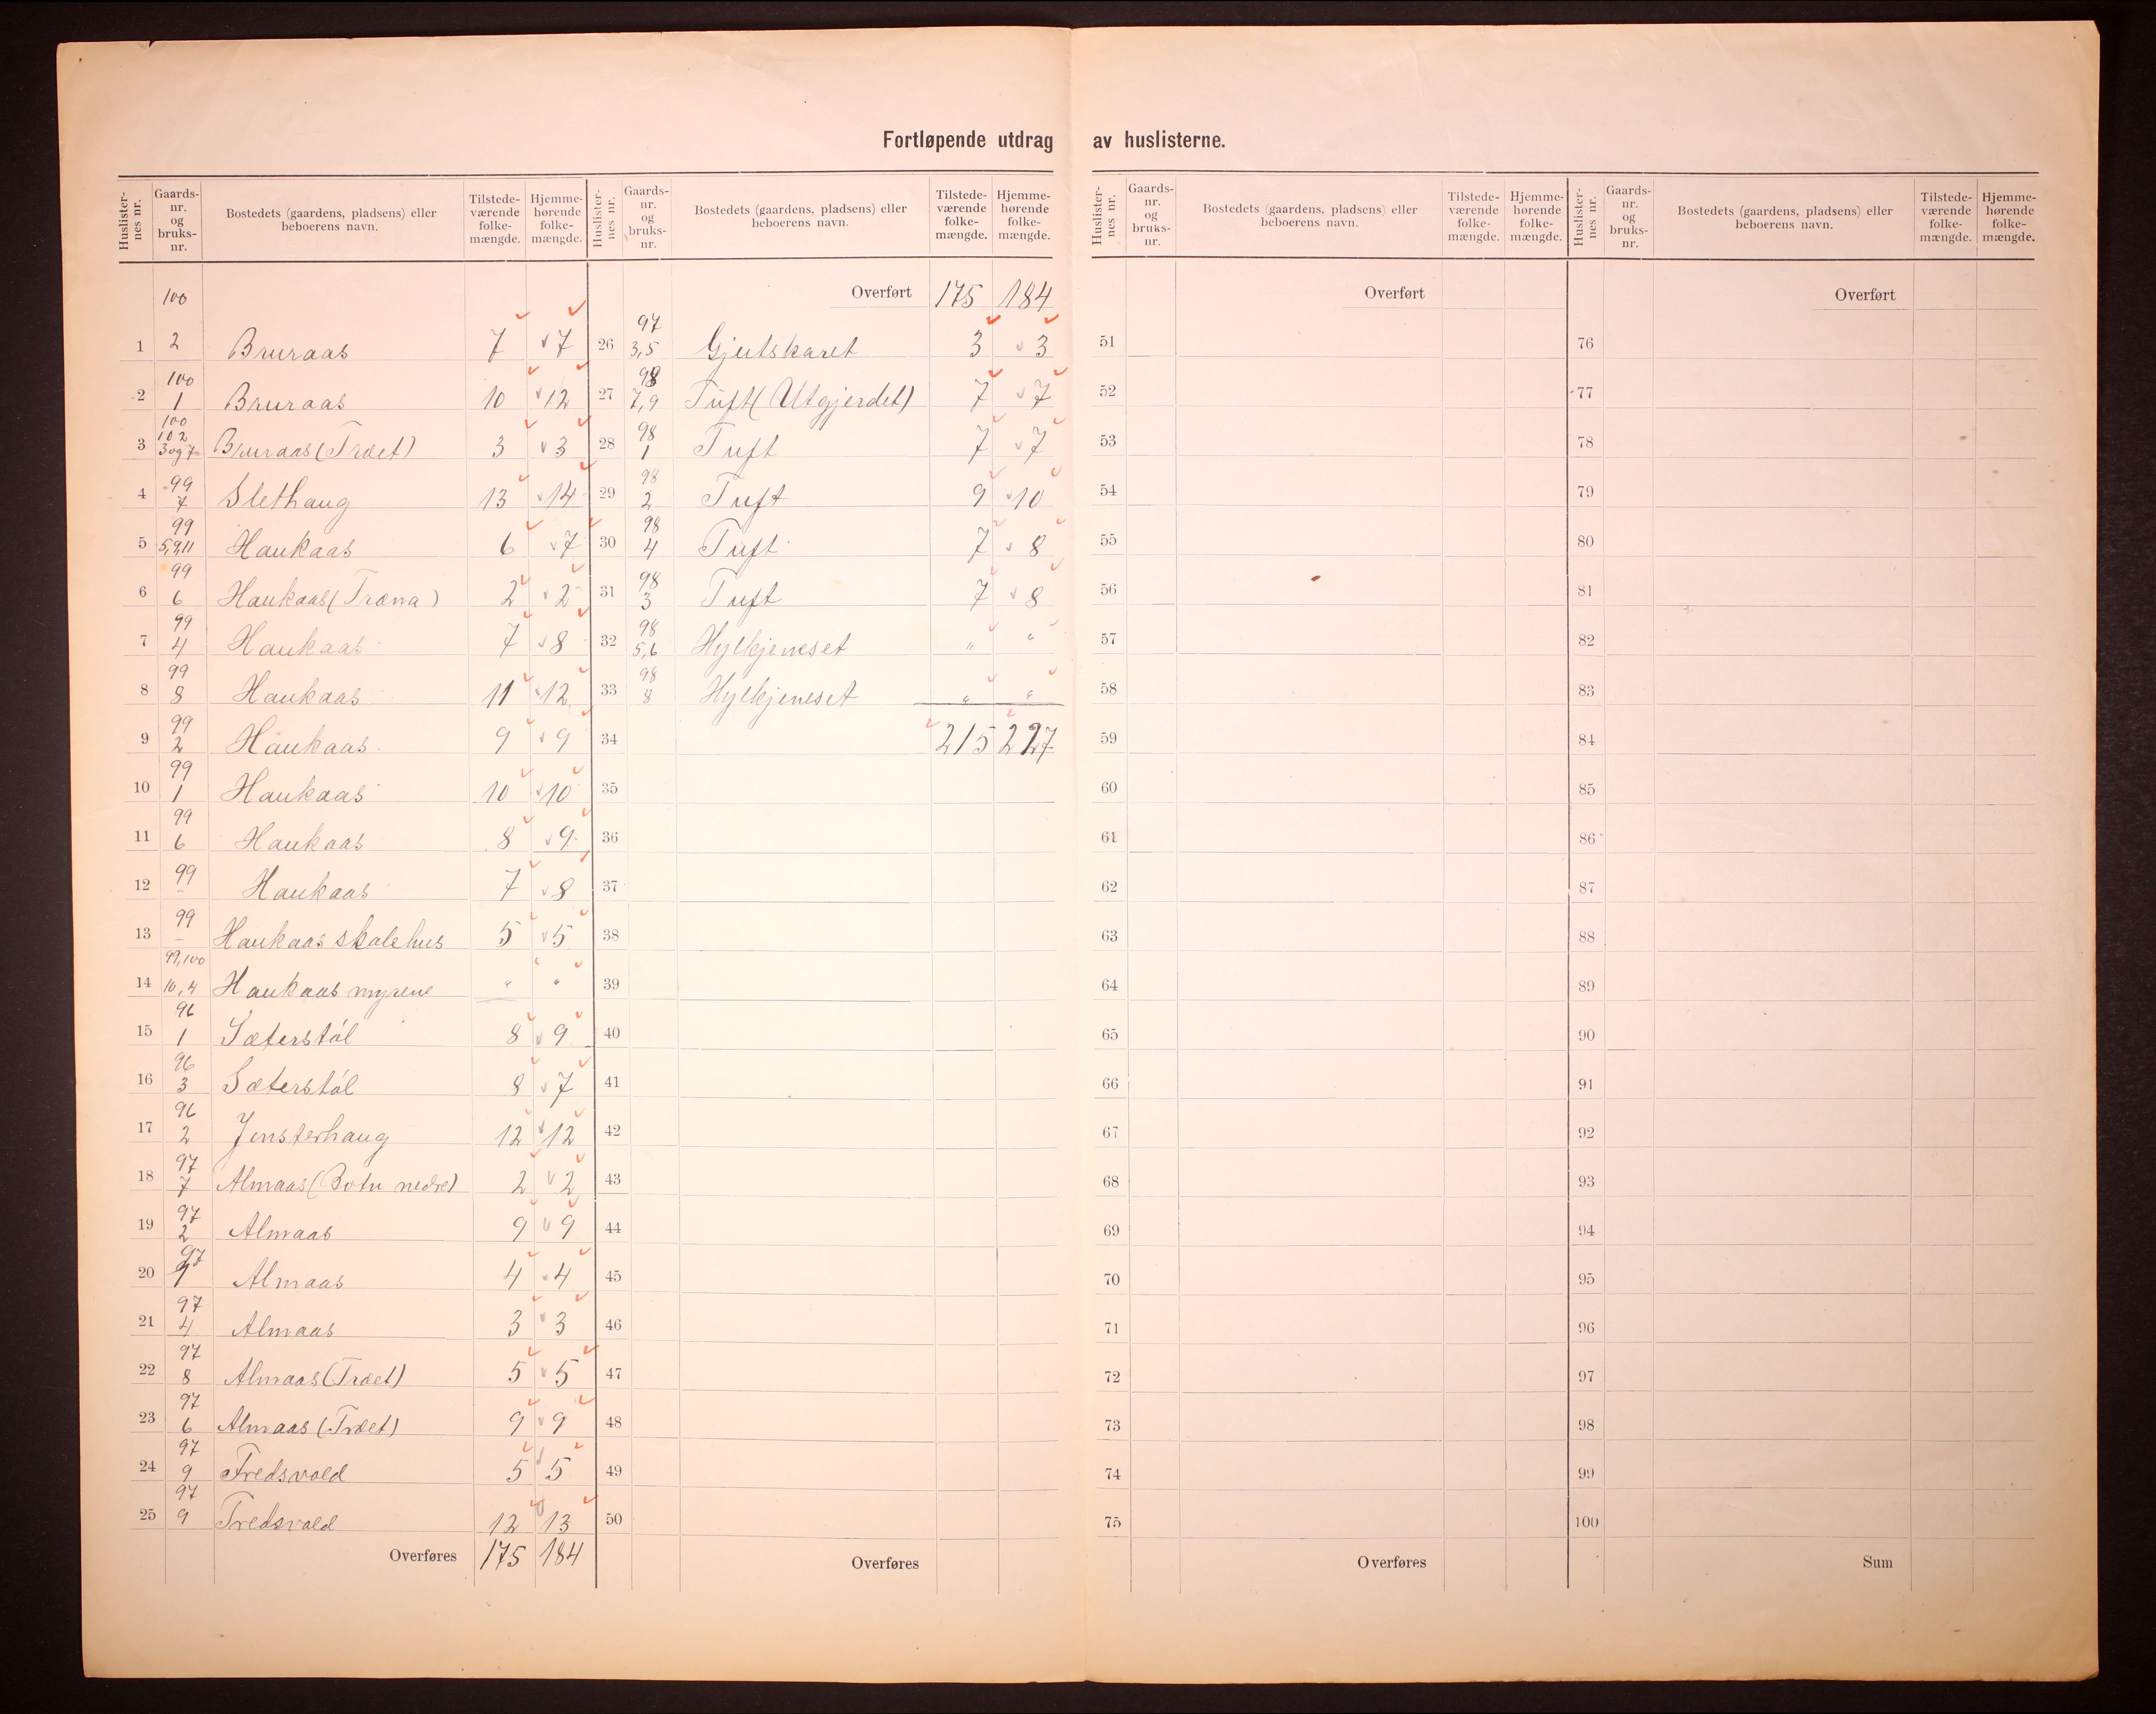 Fortløpende utdrag av huslisterne.
Huslisternes nr. Gaardsnr. og bruksnr. Bostedets (gaardens, pladsens) eller beboerens navn. Tilstedeværende folkemængde. Hjemmehørende folkemængde.
1 100 2 Bruraas 7 7
2 100 1 Bruraas 10 12
3 100 102 3 og 7 Bruraas (Træet) 3 3
4 99 7 Slethaug 13 14
5 99 5,9,11 Haukaas 6 7
6 99 6 Haukaas (Træna) 2 2
7 99 4 Haukaas 7 8
8 99 8 Haukaas 11 12
9 99 2 Haukaas 9 9
10 99 1 Haukaas 10 10
11 99 6 Haukaas 8 9
12 99 – Haukaas 7 8
13 99 – Haukaas skolehus 5 5
14 99,100 10,4 Haukaas myrene " "
15 96 1 Sæterstøl 8 9
16 96 3 Sæterstøl 8 7
17 96 2 Jonsterhaug 12 12
18 97 7 Almaas (Botn nedre) 2 2
19 97 2 Almaas 9 9
20 97 1 Almaas 4 4
21 97 4 Almaas 3 3
22 97 8 Almaas (Træet) 5 5
23 97 6 Almaas (Træet) 9 9
24 97 9 Fredsvold 5 5
25 97 9 Fredsvold 12 13
Overføres 175 184
Huslisternes nr. Gaardsnr. og bruksnr. Bostedets (gaardens, pladsens) eller beboerens navn. Tilstedeværende folkemængde. Hjemmehørende folkemængde.
Overført 175 184
26 97 3,5 Gjutskaret 3 3
27 98 7,9 Tuft (Utgjerdet) 7 7
28 98 1 Tuft 7 7
29 98 2 Tuft 9 10
30 98 4 Tuft 7 8
31 98 3 Tuft 7 8
32 98 5,6 Hylkjeneset " "
33 98 8 Hylkjeneset " "
34 215 227
35
36
37
38
39
40
41
42
43
44
45
46
47
48
49
50
Overføres
Huslisternes nr. Gaardsnr. og bruksnr. Bostedets (gaardens, pladsens) eller beboerens navn. Tilstedeværende folkemængde. Hjemmehørende folkemængde.
Overført
51
52
53
54
55
56
57
58
59
60
61
62
63
64
65
66
67
68
69
70
71
72
73
74
75
Overføres
Huslisternes nr. Gaardsnr. og bruksnr. Bostedets (gaardens, pladsens) eller beboerens navn. Tilstedeværende folkemængde. Hjemmehørende folkemængde.
Overført
76
77
78
79
80
81
82
83
84
85
86
87
88
89
90
91
92
93
94
95
96
97
98
99
100
Sum